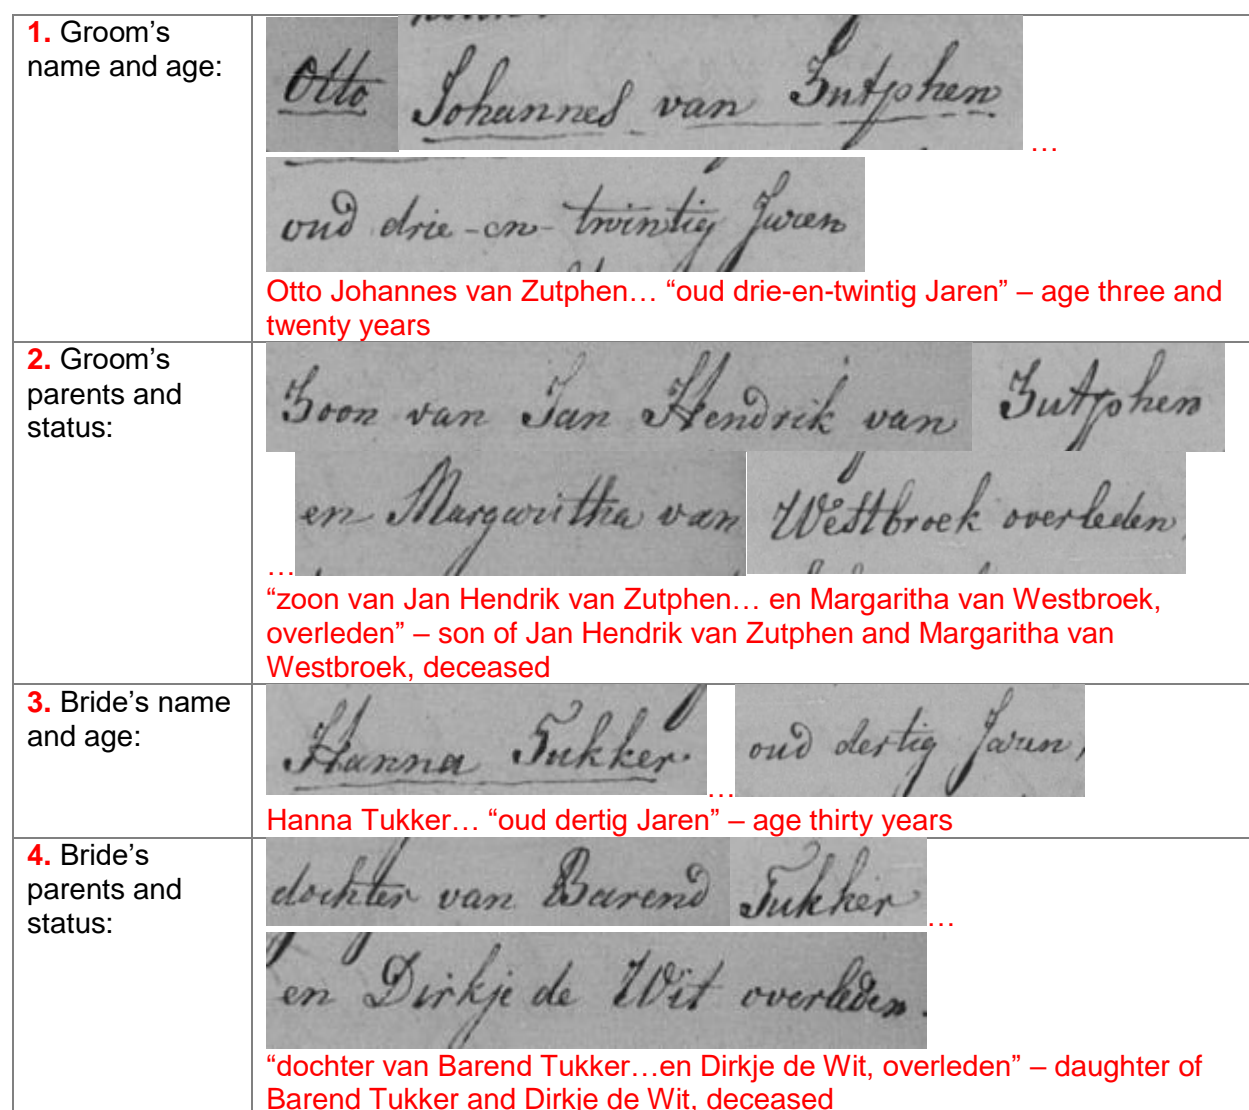 1. Groom's
name and age:
Otto Johannes van Zutphen …
oud drie-en-twintig Jaren
Otto Johannes van Zutphen… “oud drie-en-twintig Jaren” – age three and
twenty years
2. Groom's
parents and
status:
Zoon van Jan Hendrik van Zutphen
… en Margaritha van Westbroek overleden,
“zoon van Jan Hendrik van Zutphen… en Margaritha van Westbroek,
overleden” – son of Jan Hendrik van Zutphen and Margaritha van
Westbroek, deceased
3. Bride's name
and age:
Hanna Tukker … oud dertig Jaren,
Hanna Tukker… “oud dertig Jaren” – age thirty years
4. Bride's
parents and
status:
dochter van Barend Tukker …
en Dirkje de Wit overleden.
“dochter van Barend Tukker…en Dirkje de Wit, overleden” – daughter of
Barend Tukker and Dirkje de Wit, deceased